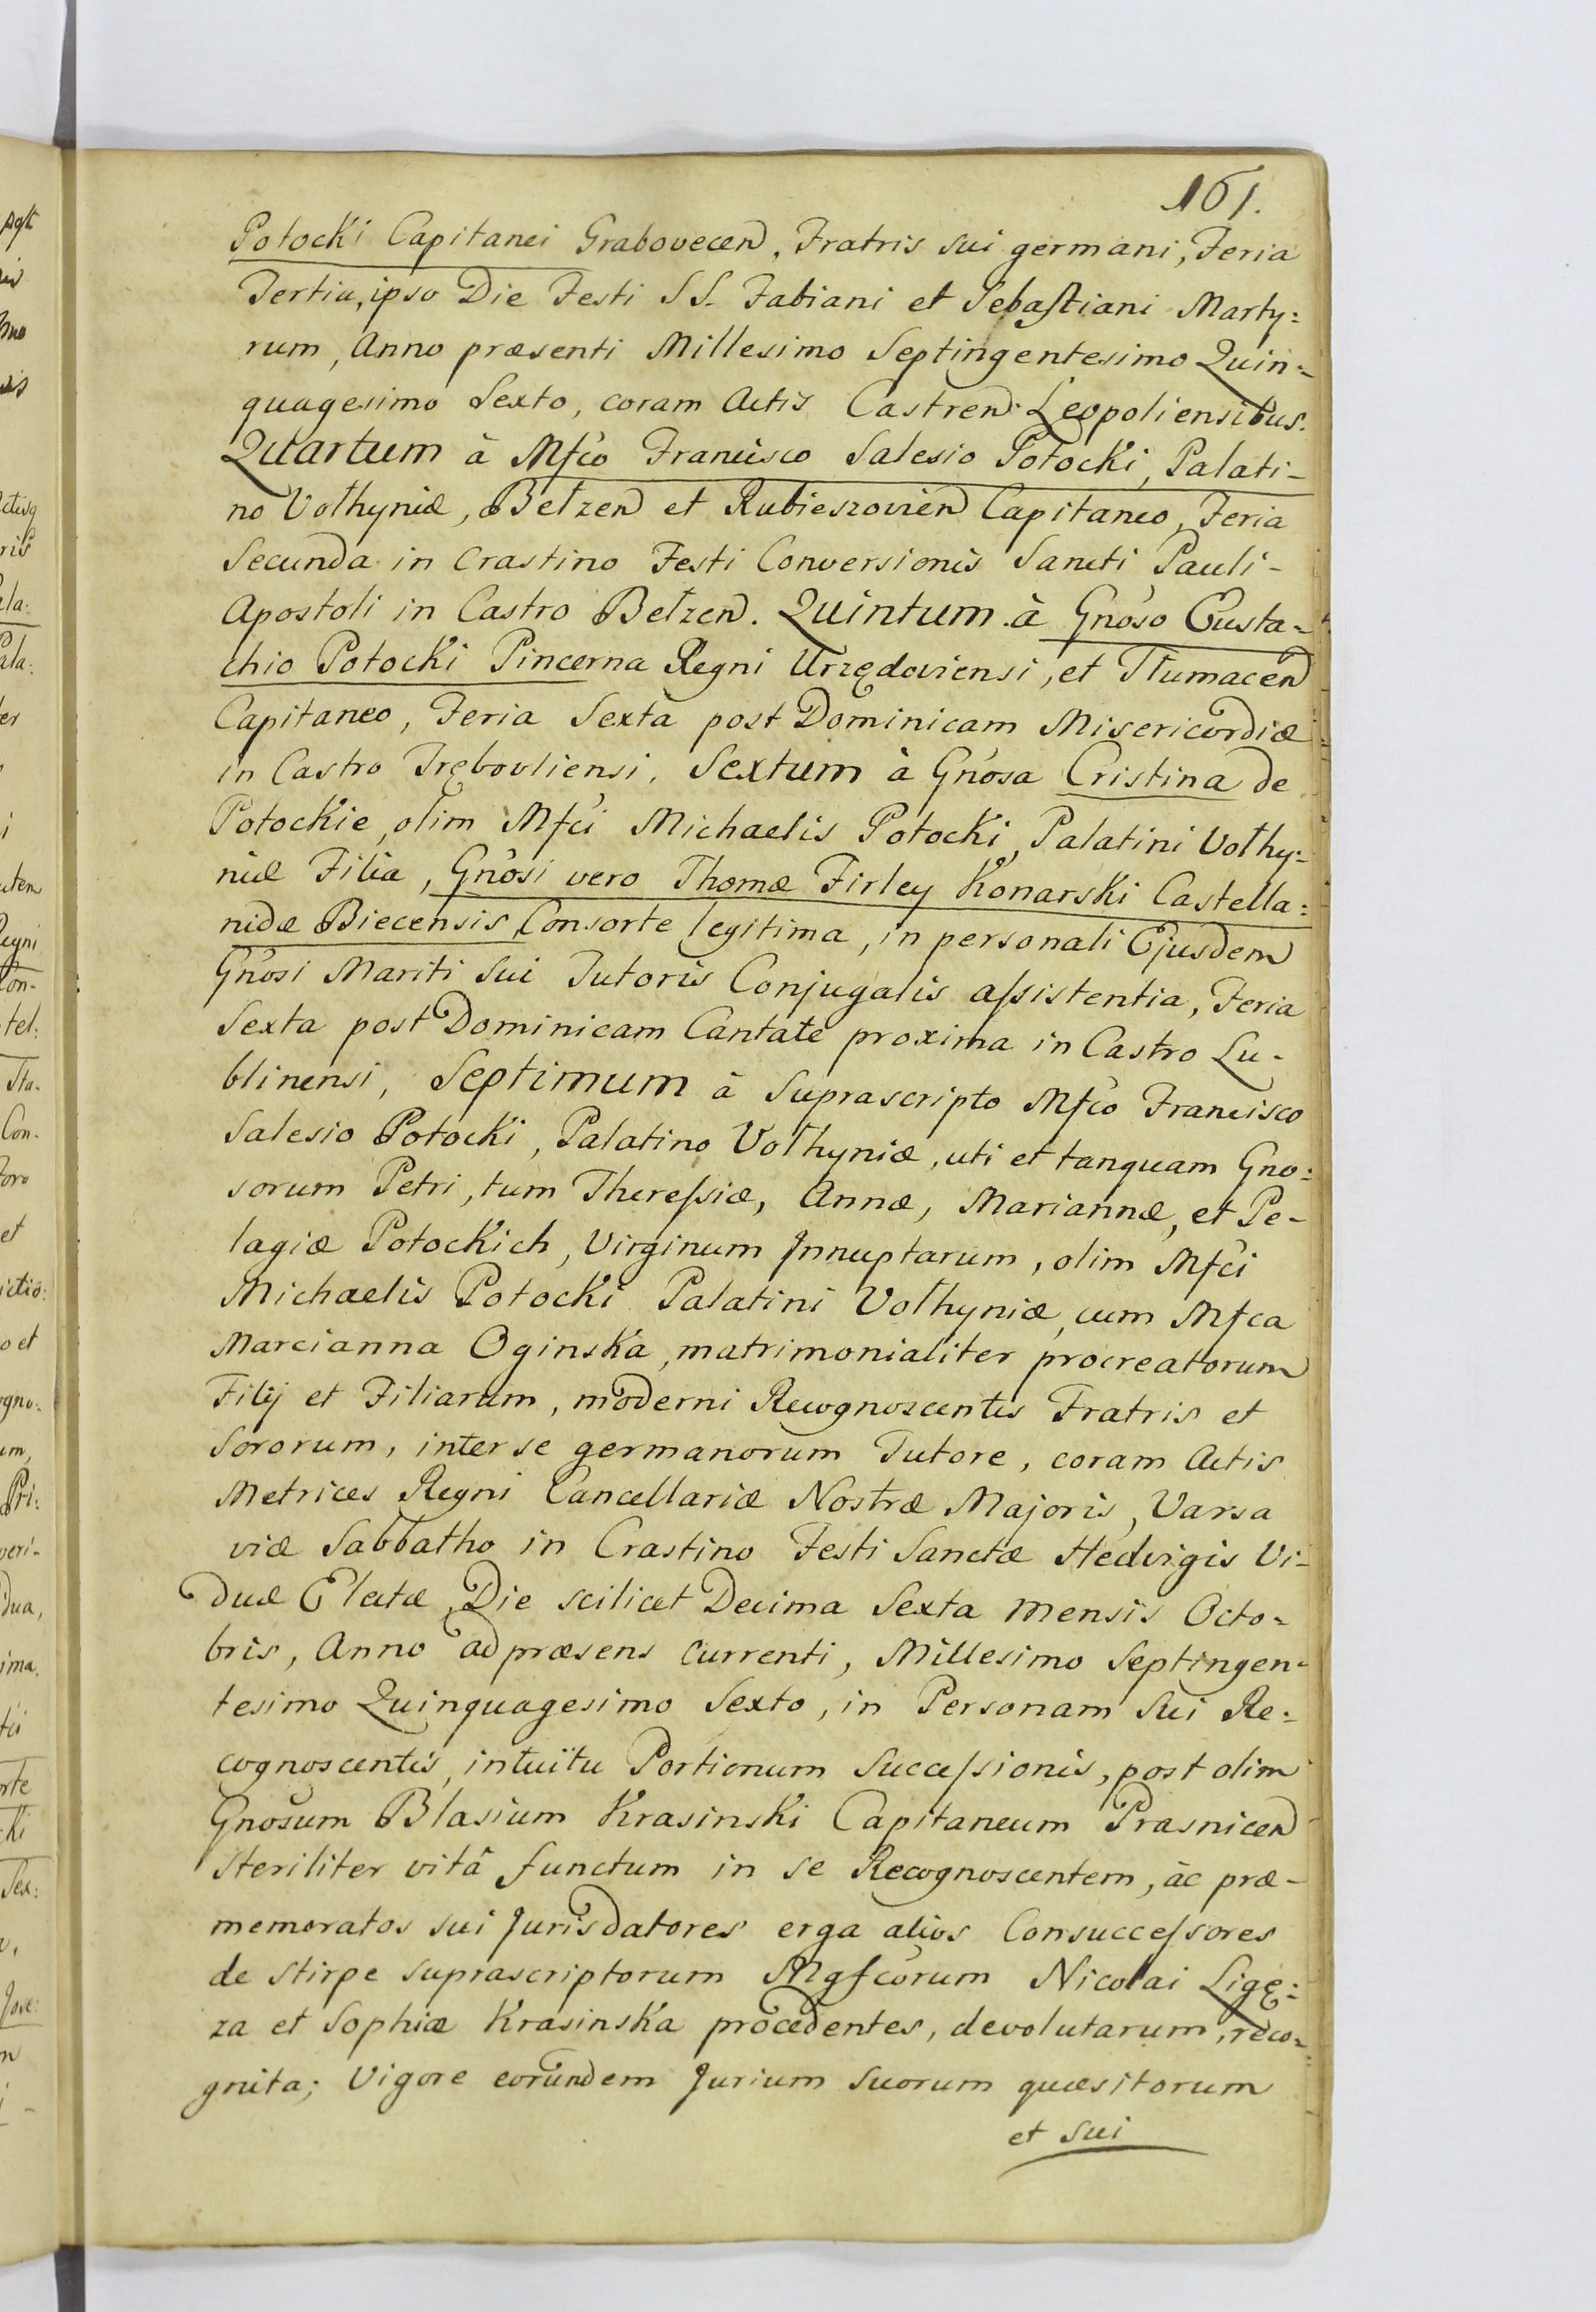 161.
Potocki Capitanei Grabovecen, Fratris sui germani, Feria
Tertia, ipso Die Festi SS. Fabiani et Sebastiani Marty:
rum, Anno præsenti Millesimo Septingentesimo Quin:
quagesimo Sexto, coram Actis Castren: Leopoliensibus.
Quartum à Mfco Francisco Salesio Potocki, Palati-
no Volhyniæ, Bełzen et Rubieszovien Capitaneo, Feria
Secunda in Crastino Festi Conversionis Sancti Pauli-
Apostoli in Castro Bełzen. Quintum à Gnoso Eusta-
chio Potocki Pincerna Regni Urzędoviensi, et Tłumacen
Capitaneo, Feria Sexta post Dominicam Misericordiæ
in Castro Trębovliensi. Sextum à Gnosa Cristina de
Potockie, olim Mfci Michaelis Potocki, Palatini Volhy:
niæ Filia, Gnosi vero Thomæ Firley Konarski Castella:
nidæ Biecensis Consorte legitima, in personali Ejusdem
Gnosi Mariti sui Tutoris Conjugalis assistentia, Feria
Sexta post Dominicam Cantate proxima in Castro Lu-
blinensi, Septimum à suprascripto Mfco Francisco
Salesio Potocki, Palatino Volhyniæ, uti et tanquam Gno:
sorum Petri, tum Theressiæ, Annæ, Mariannæ, et Pe-
lagiæ Potockich, Virginum Innuptarum, olim Mfci
Michaelis Potocki Palatini Volhyniæ, cum Mfca
Marcianna Oginska, matrimonialiter procreatorum
Filij et Filiarum, moderni Recognoscentis Fratris et
Sororum, inter se germanorum Tutore, coram Actis
Metrices Regni Cancellariæ Nostræ Majoris, Varsa
viæ Sabbatho in Crastino Festi Sanctæ Hedvigis Vi-
duæ Electæ, Die scilicet Decima Sexta mensis Octo-
bris, Anno ad præsens currenti, Millesimo Septingen-
tesimo Quinquagesimo Sexto, in Personam sui Re:
cognoscentis, intuitu Portionum Successionis, post olim
Gnosum Blasium Krasinski Capitaneum Prasnicen
steriliter vitâ functum in se Recognoscentem, àc præ-
memoratos sui Jurisdatores erga alios Consuccessores
de stirpe suprascriptorum Mgfcorum Nicolai Ligę:
za et Sophiæ Krasinska procedentes, devolutarum, reco-
gnita; Vigore eorundem Jurium suorum quæsitorum
et sui